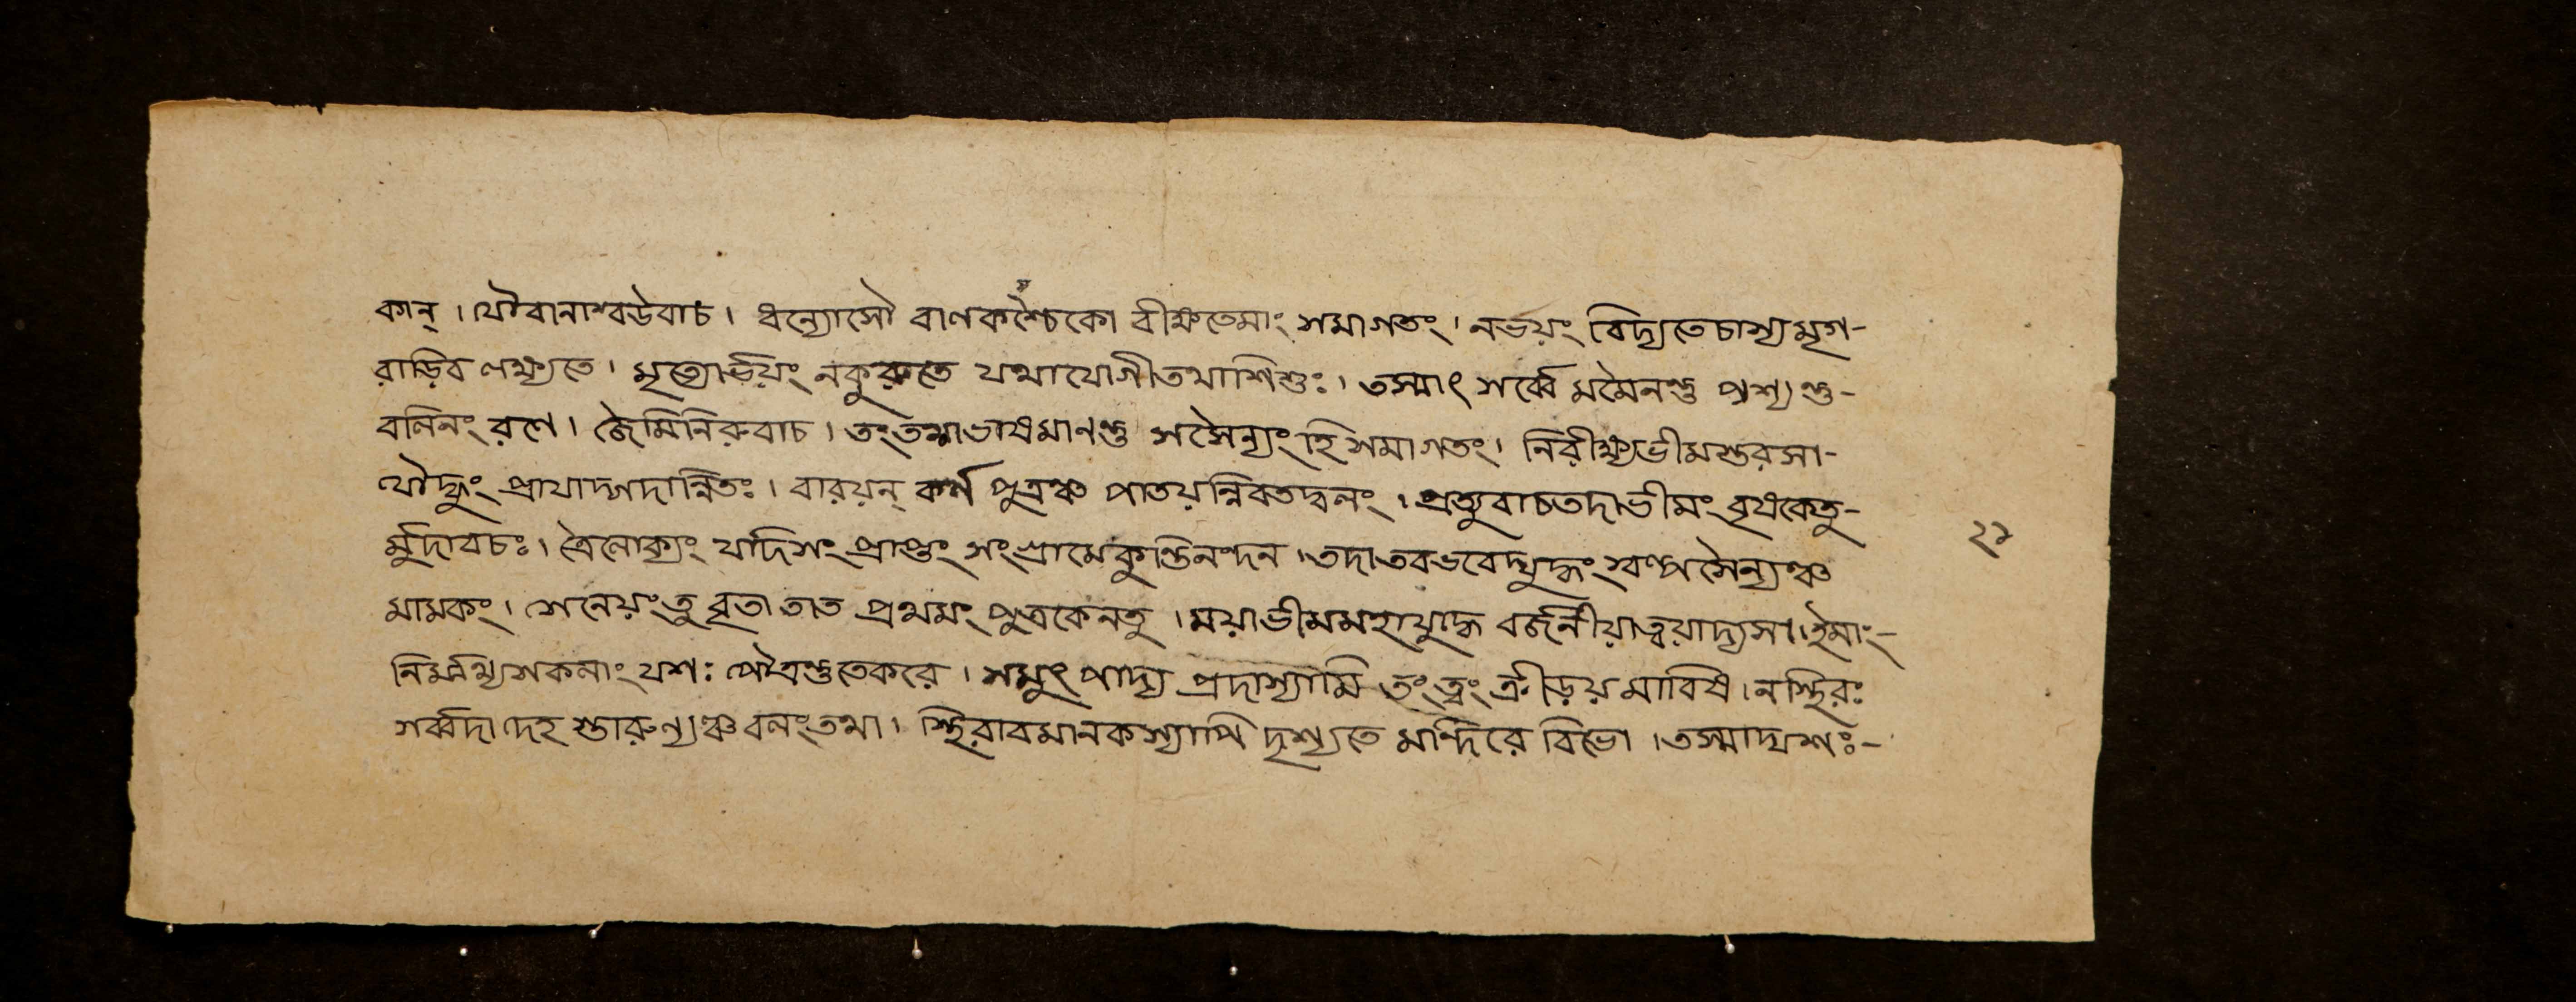 কান্। যৌবানাশ্বউবাচ। ধন্যোসৌ বাণকশ্চৈকো বীক্ষতেমাং সমাগতং। নর্ভয়ং বিদ্যতেচাস্যমৃগ-
রাড়িব লক্ষ্যতে। মৃত্যোর্ভয়ং নকুরুতে যথাযোগীতথাশিশুঃ। তস্মাৎ সর্ব্বে মমৈনন্তু পশ্যন্তু-
বলিনং রণে। জৈমিনিরুবাচ। তংতথাভাষমাণন্তু সসৈন্যং হি সমাগতং। নিরীক্ষ্যভীমস্তরসা-
যোদ্ধুং প্রাযাদ্গদান্বিতঃ। বারয়ন্ কর্ণ পুত্রঞ্চ পাতয়ন্নিবতদ্বলং। প্রত্যুবাচতদাভীমং বৃষকেতু-
র্মুদাবচঃ। ত্রৈলোক্যং যদিসং প্রাপ্তং সংগ্রামেকুন্তিনন্দন। তদাতবভবেদ্যুদ্ধং স্বল্পসৈন্যঞ্চ
মামকং। সেনেয়ংতু বৃতা তাত প্রথমং পুত্রকেনতু। ময়াভীমমহাযুদ্ধে বর্জনীয়াত্বয়াদ্যসা। ইমাং-
নির্মথ্যসকলাং যশঃ পৌত্রন্তুতেকরে। সমুৎপাদ্য প্রদাস্যামি তং ত্বং ক্রীড়য় মাবিষ। নস্থিরঃ
সর্ব্বদা দেহ স্তারুণ্যঞ্চবলংতথা। স্থিরাবমানকস্যাপি দৃশ্যতে মন্দিরে বিভো। তস্মাদ্যশঃ-
২১